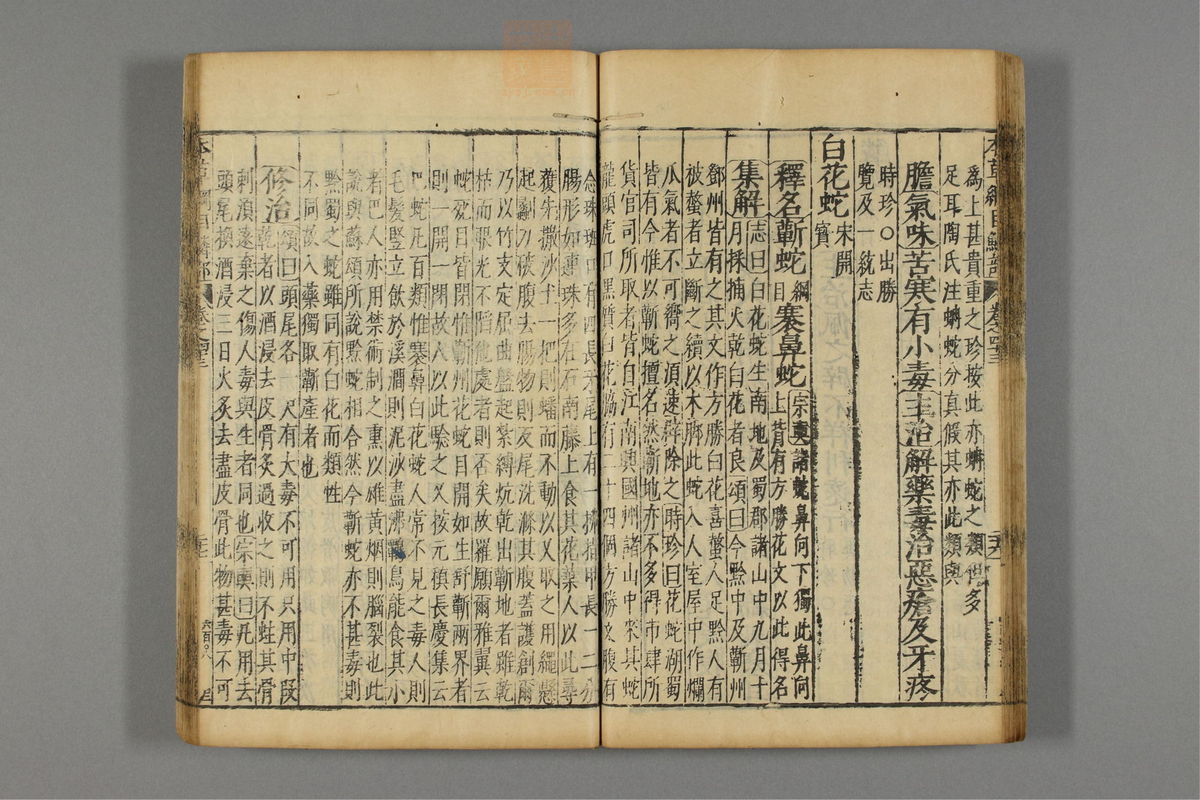 本草綱目鱗部 卷之四十三
爲上甚貴重之珍按此亦蚺蛇之類但多
足耳陶氏注蚺蛇分真假其亦此類與
膽氣味苦寒有小毒主治解藥毒治惡瘡及牙疼
時珍○出勝
覽及一統志
白花蛇宋開寶
釋名蘄蛇綱目褰鼻蛇宗奭諸蛇鼻向下獨此鼻向
上背有方勝花文以此得名
集解志曰白花蛇生南地及蜀郡諸山中九月十
月採捕火乾白花者良頌曰今黔中及蘄州
鄧州皆有之其文作方勝白花喜螫人足黔人有
被螫者立斷之續以木脚此蛇入人室屋中作爛
瓜氣者不可嚮之須速辟除之時珍曰花蛇湖蜀
皆有今惟以蘄蛇擅名然蘄地亦不多得市肆所
貨官司所取者皆自江南興國州諸山中來其蛇
龍頭虎口黑質白花脇有二十四個方勝文腹有
念珠斑口有四長牙尾上有一佛指甲長一二分
腸形如連珠多在石南藤上食其花葉人以此尋
獲先撒沙土一把則蟠而不動以叉取之用繩懸
起劙刀破腹去腸物則反尾洗滌其腹蓋護創爾
乃以竹支定屈曲盤起紮縛炕乾出蘄地者雖乾
枯而眼光不陷他處者則否矣故羅願爾雅翼云
蛇死目皆閉惟蘄州花蛇目開如生舒蘄兩界者
則一開一閉故人以此驗之又按元稹長慶集云
巴蛇凡百類惟褰鼻白花蛇人常不見之毒人則
毛髮豎立飲於溪澗則泥沙盡沸鷣鳥能食其小
者巴人亦用禁術制之熏以雄黃烟則腦裂也此
說與蘇頌所說黔蛇相合然今蘄蛇亦不甚毒則
黔蜀之蛇雖同有白花而類性
不同故入藥獨取蘄產者也
修治頌曰頭尾各一尺有大毒不可用只用中段
乾者以酒浸去皮骨炙過收之則不蛀其骨
刺須遠棄之傷人毒與生者同也宗奭曰凡用去
頭尾換酒浸三日火炙去盡皮骨此物甚毒不可
本草綱目鱗部 卷之四十三